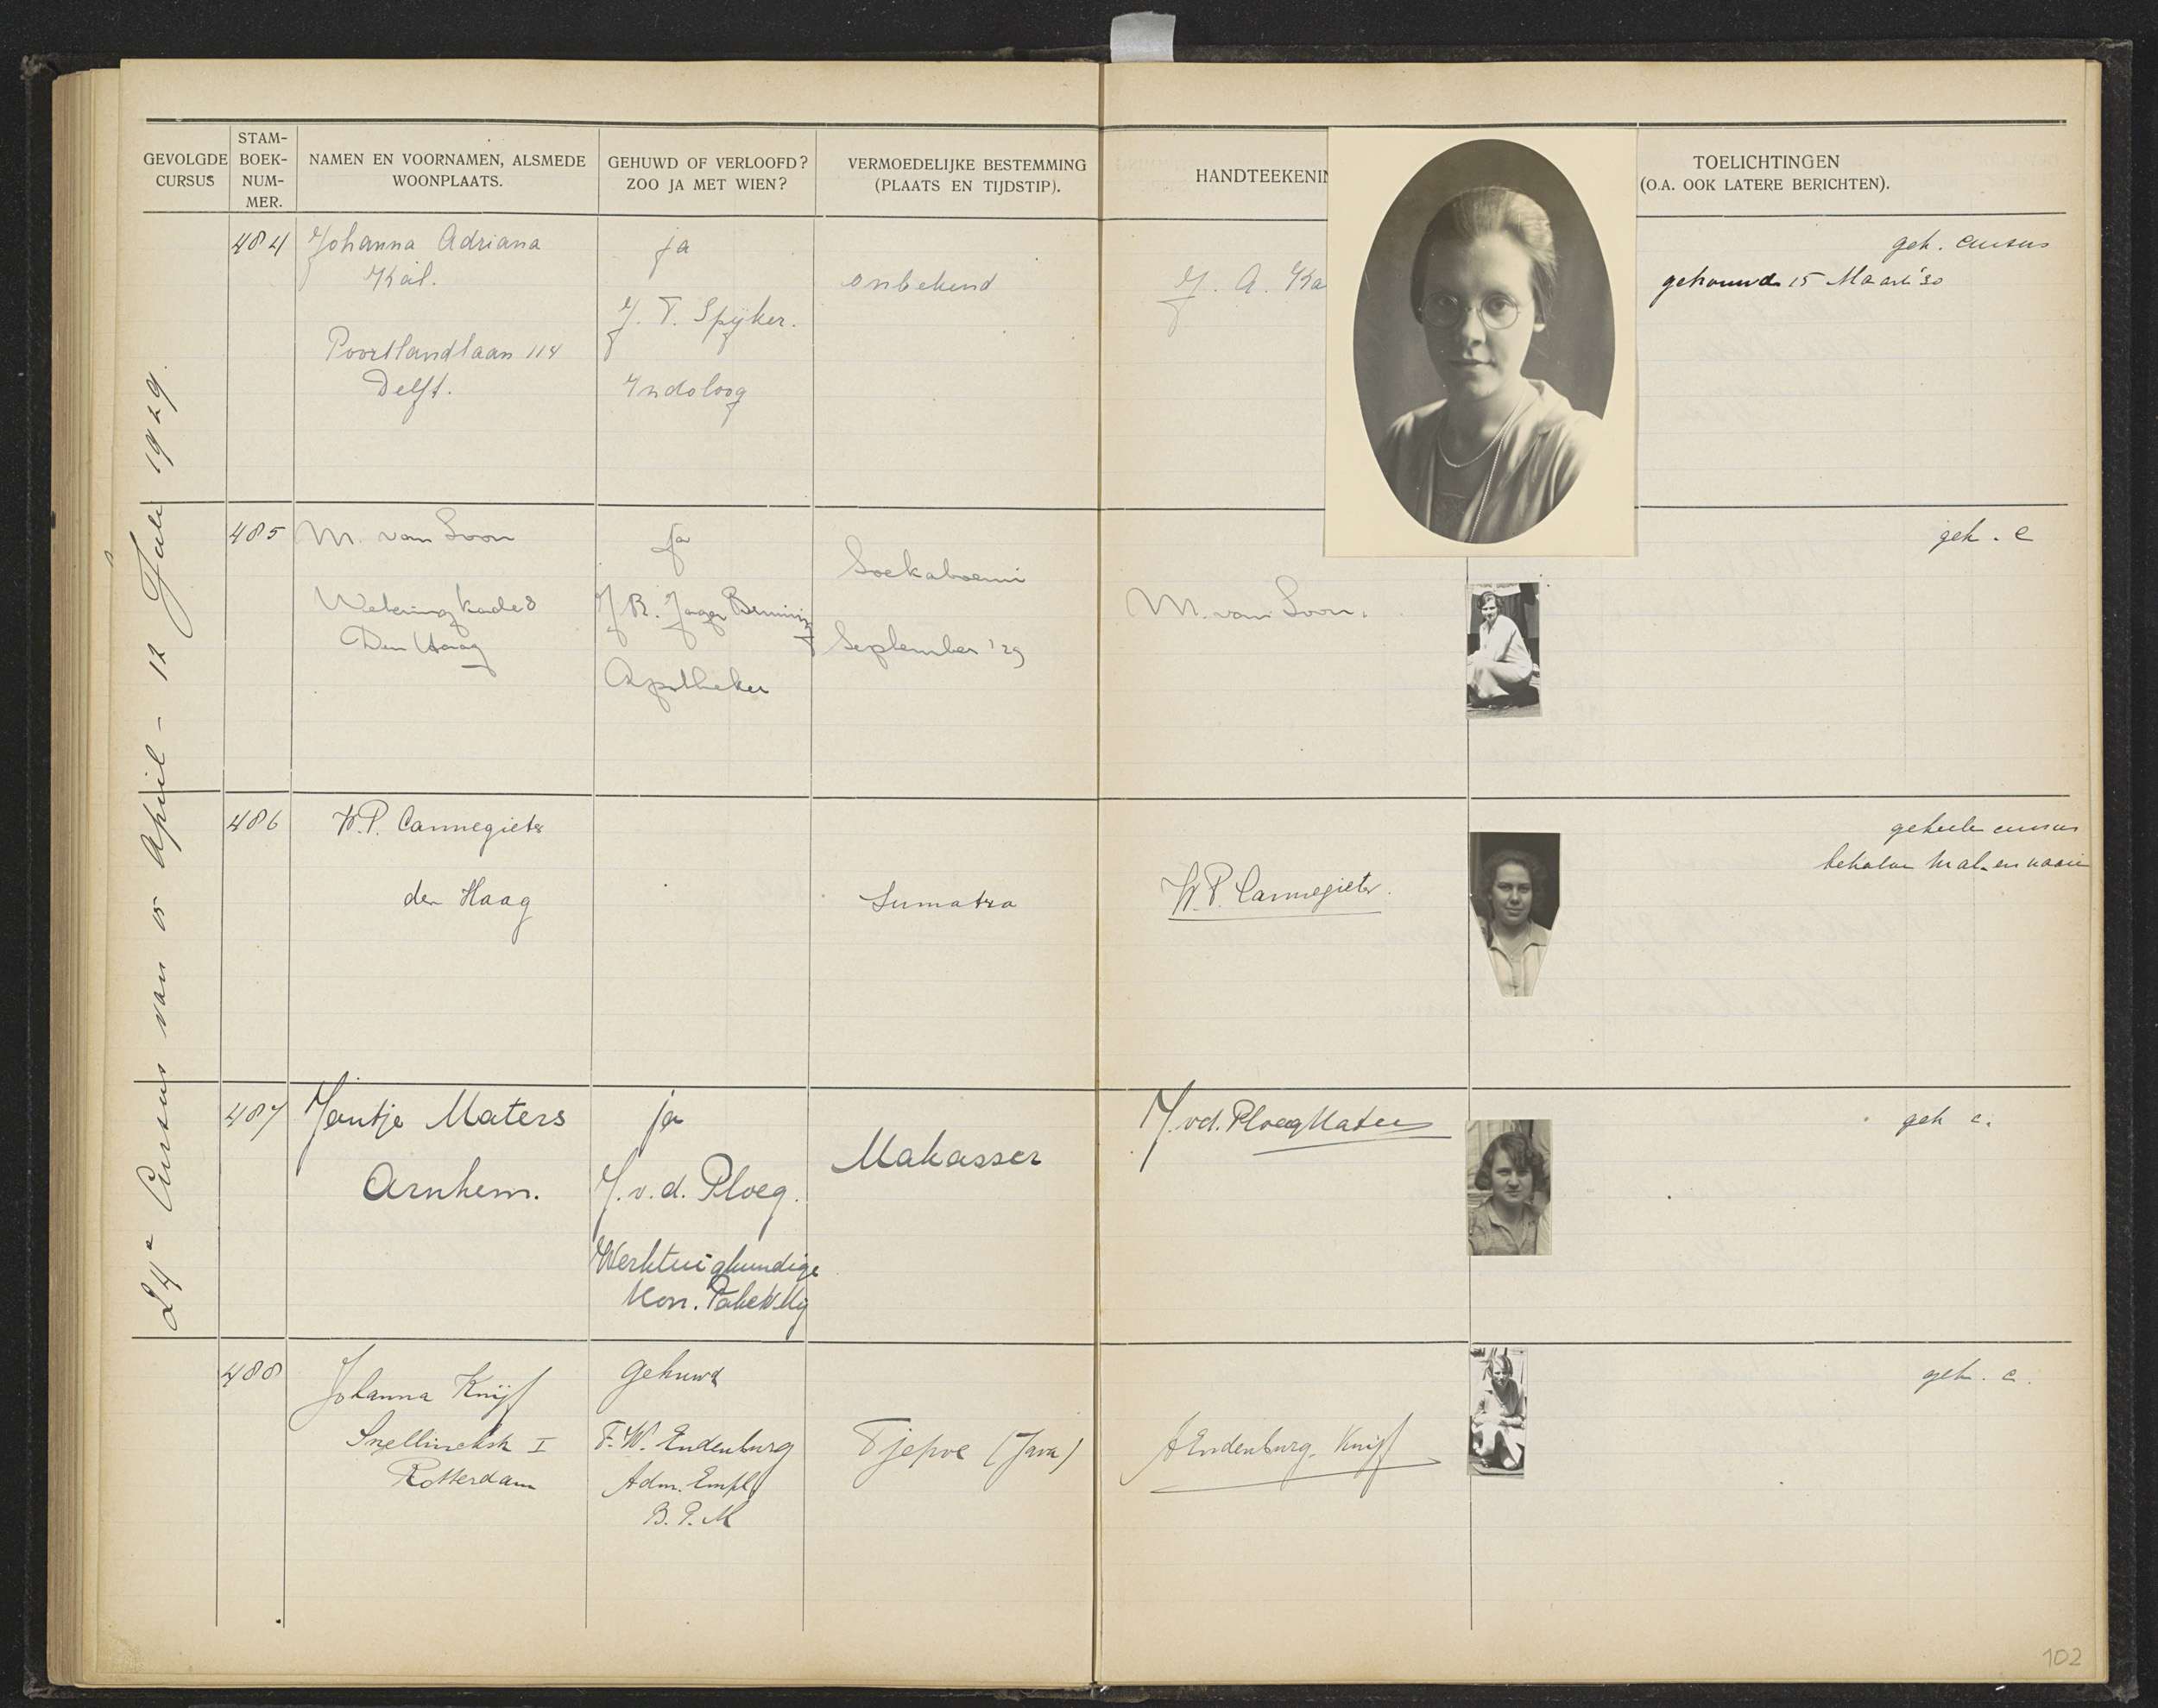 GEVOLGDE
CURSUS
STAM-
BOEK-
NUM-
MER.
NAMEN EN VOORNAMEN, ALSMEDE
WOONPLAATS.
GEHUWD OF VERLOOFD?
ZOO JA MET WIEN?
VERMOEDELIJKE BESTEMMING
(PLAATS EN TIJDSTIP).
HANDTEEKENIN
TOELICHTINGEN
(O.A. OOK LATERE BERICHTEN).
24e Cursus van 15 April - 12 Juli 1929.
484
Johanna Adriana
Kal.
Poortlandlaan 114
Delft.
ja
J. T. Spijker.
Indoloog
onbekend
J. A. Ka
geh. cursus
getrouwd 15 Maart '30
485
M. van Loon
Weteringkade 8
Den Haag
ja
J R. Jager Bening
Apotheker
Soekaboemi
September '29
M. van Loon.
geh. c
486
W.P. Cannegieter
den Haag
Sumatra
W.P. Cannegieter.
geheele cursus
behalve mal. en naaien
487
Jantje Maters
Arnhem.
ja
J. v. d. Ploeg.
Werktuigkundige
Kon. Paketv. Mij
Makasser
J. vd. Ploeg Maters
geh c.
488
Johanna Knijf
Snellinckstr I
Rotterdam
gehuwd
F. W. Endenburg
Adm. Empl
B. P. M
Tjepoe (Java)
J Endenburg-Knijf
geh. c.
102